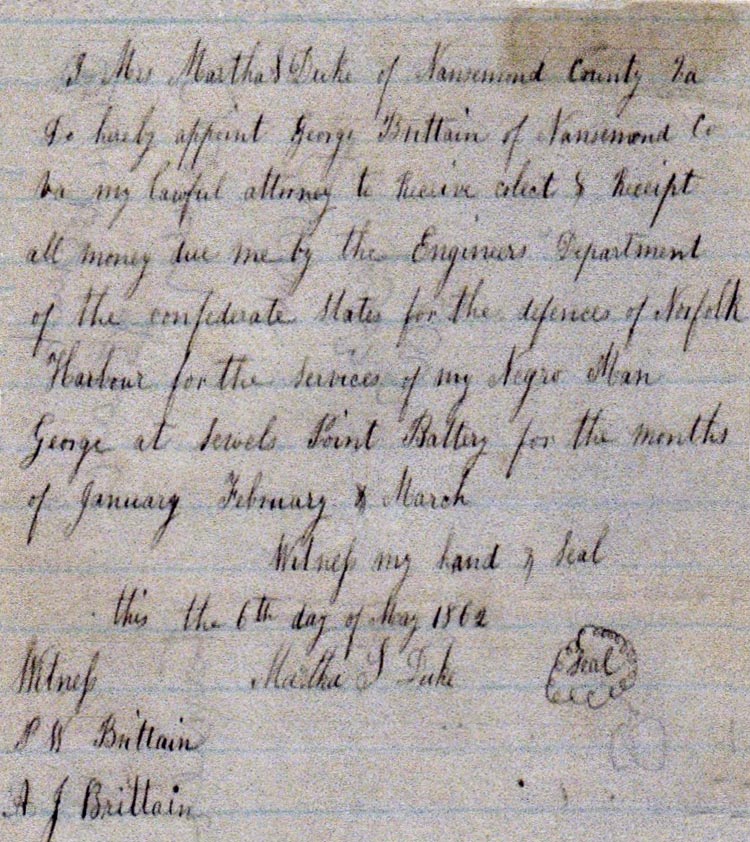 I Mrs Martha S Duke of Nansemond County Va
Do hereby appoint George Brittain of Nansemond Co
Va my lawful attorney to Receive colect & Receipt
all money due me by the Engineers Department
of the confederate States for the defences of Norfolk
Harbour for the services of my Negro Man
George at Sewels Point Battery for the months
of January February & March
Witness my hand & Seal
this the 6th day of May 1862
Witness Martha S Duke Seal
P W Brittain
A J Brittain